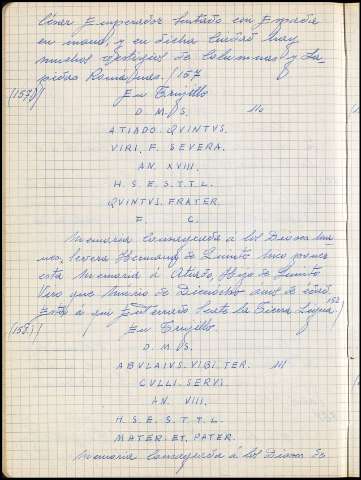 César Emperador sentado con Espada
en mano, y en dicha ciudad hay
muchos vestigios de Columnas y La-
pidas Romanas. (157
(157)) En Trujillo
D. M. S. 110
ATIADO. QVINTVS.
VIRI. F. SEVERA.
AN. XVIII.
H. S. E. S. T. T. L.
QVINTVS. FRATER.
F. C.
Memoria Consagrada á los Dioses Ma-
nes, Severa Hermana de Quinto hizo poner
esta Memoria á Atiado Hijo de Quinto
Viro que Murio de Dieciocho años de edad
Está á qui Enterrado Seate la Tierra Ligera 158)
(158) En Trujillo
D. M. S.
ABVLAIVS. VIBI. TER. 111
CVLLI. SERVI.
AN. VIII.
H. S. E. S. T. T. L.
MATER. ET. PATER.
Memoria Consagrada á los Dioses de